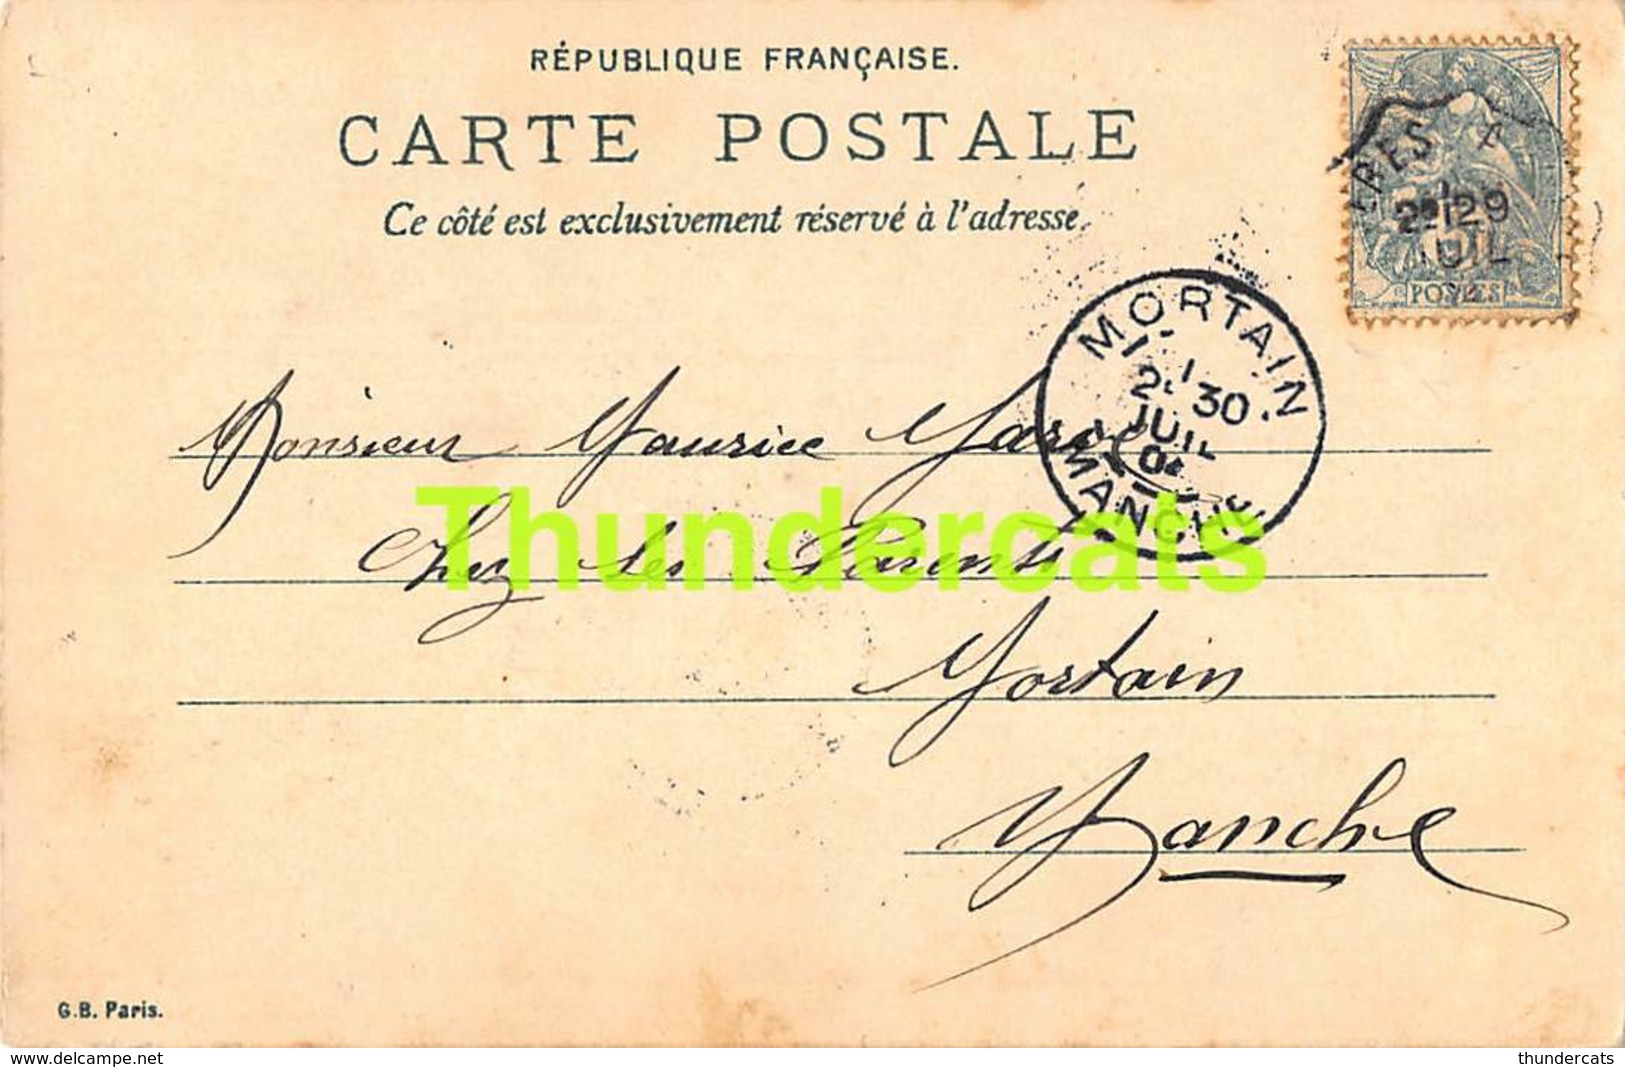 RÉPUBLIQUE FRANÇAISE.
CARTE POSTALE
Ce côté est exclusivement réservé à l'adresse.
POSTES
29
MORTAIN
30
JUIL
MANCHE
Monsieur Maurice
Chez ses Parents
Mortain
Manche
Thundercats
G.B. Paris.
www.delcampe.net
thundercats